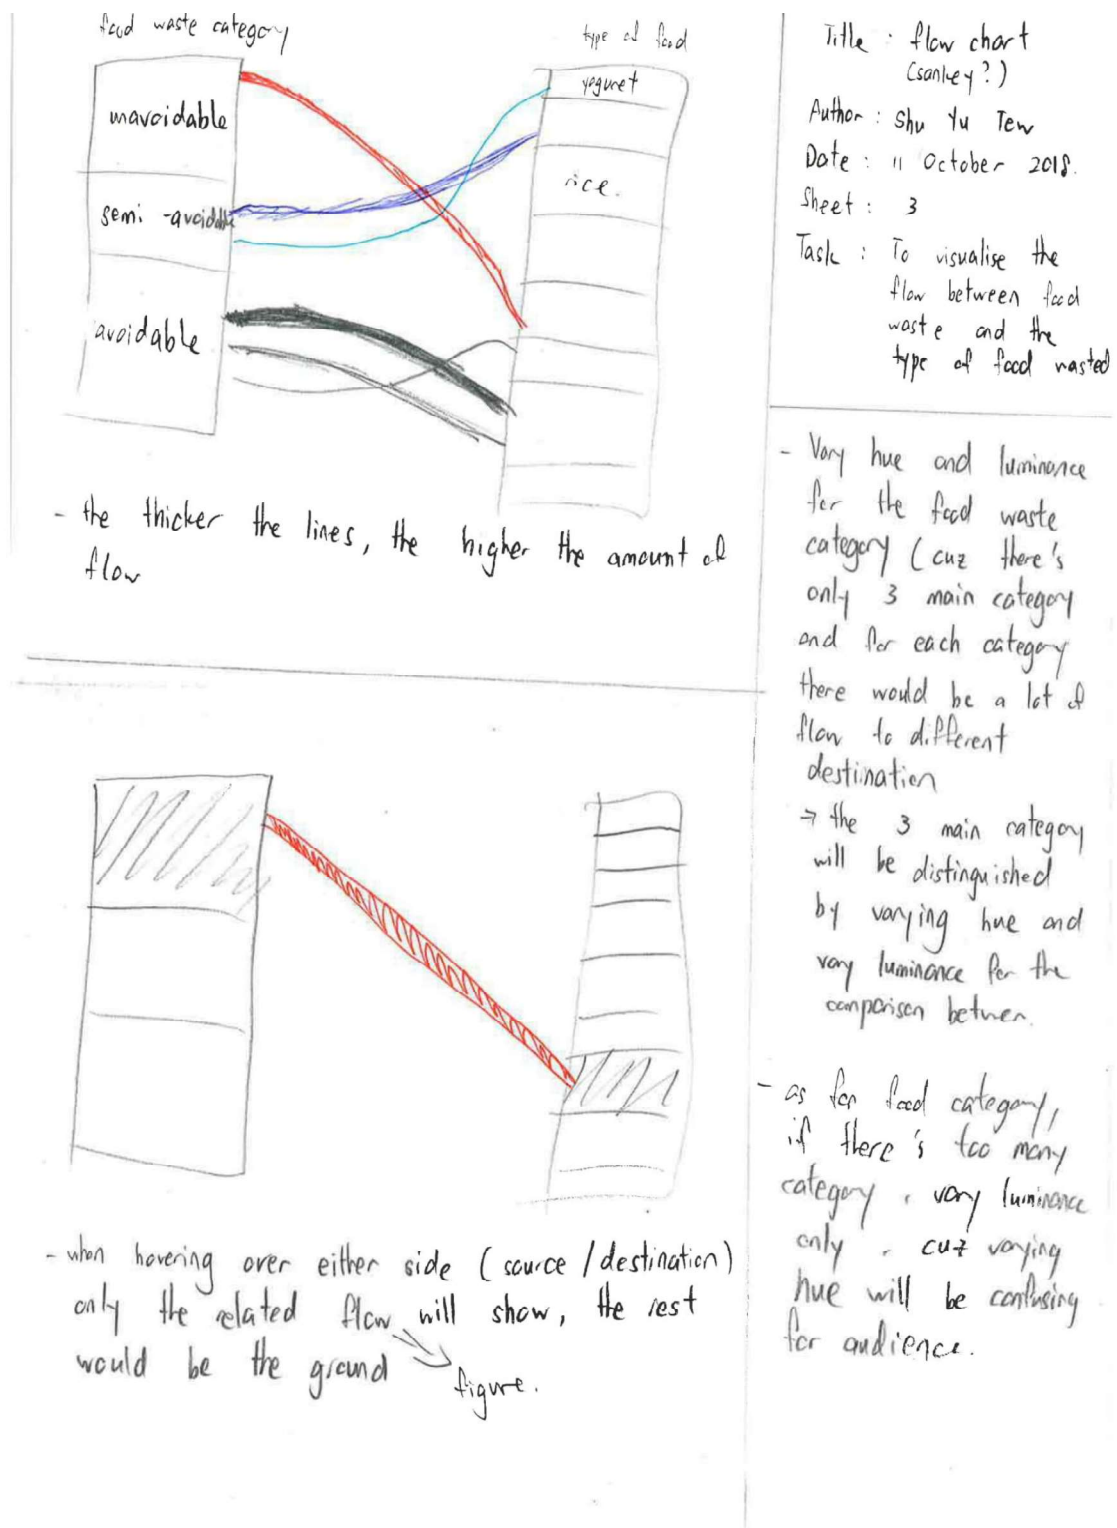 food waste category
type of food
unavoidable
semi - avoidable
avoidable
yogurt
rice.
- the thicker the lines, the higher the amount of
flow
- when hovering over either side (source / destination)
only the related flow will show, the rest
would be the ground
figure.
Title : flow chart
(sankey?)
Author : Shu Yu Tew
Date : 11 October 2018.
Sheet : 3
Task : To visualise the
flow between food
waste and the
type of food wasted
- Vary hue and luminance
for the food waste
category ( cuz there's
only 3 main category
and for each category
there would be a lot of
flow to different
destination
→ the 3 main category
will be distinguished
by varying hue and
vary luminance for the
comparison between.
- as for food category,
if there's too many
category, vary luminance
only, cuz varying
hue will be confusing
for audience.